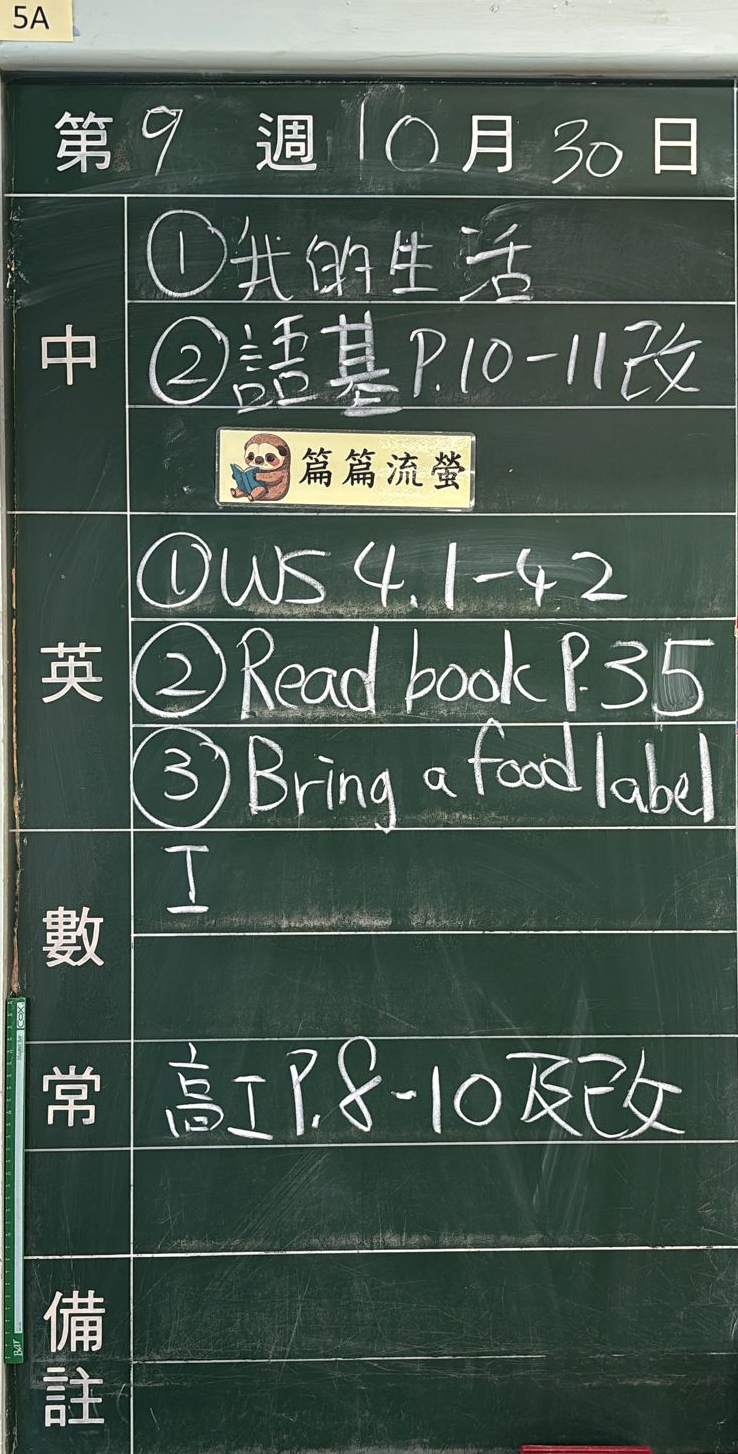 5A
第9週10月30日
中
①我的生活
②語基P.10-11改
篇篇流螢
英
①WS 4.1-4.2
②Read book P.35
③Bring a food label
數
工
常
高工P.8-10及改
備註